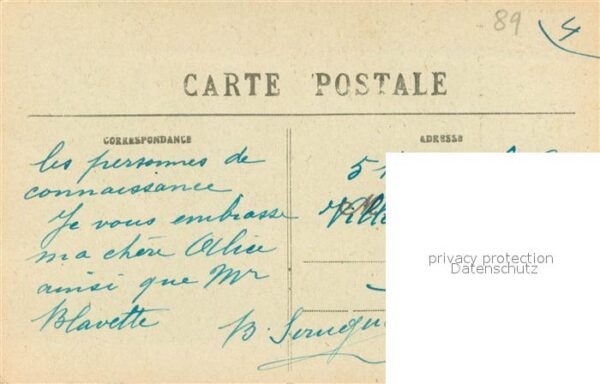 89
4
CARTE POSTALE
CORRESPONDANCE
ADRESSE
les personnes de
connaissance
Je vous embrasse
ma chère Alice
ainsi que Mr
Blavette
B.
5
privacy protection
Datenschutz